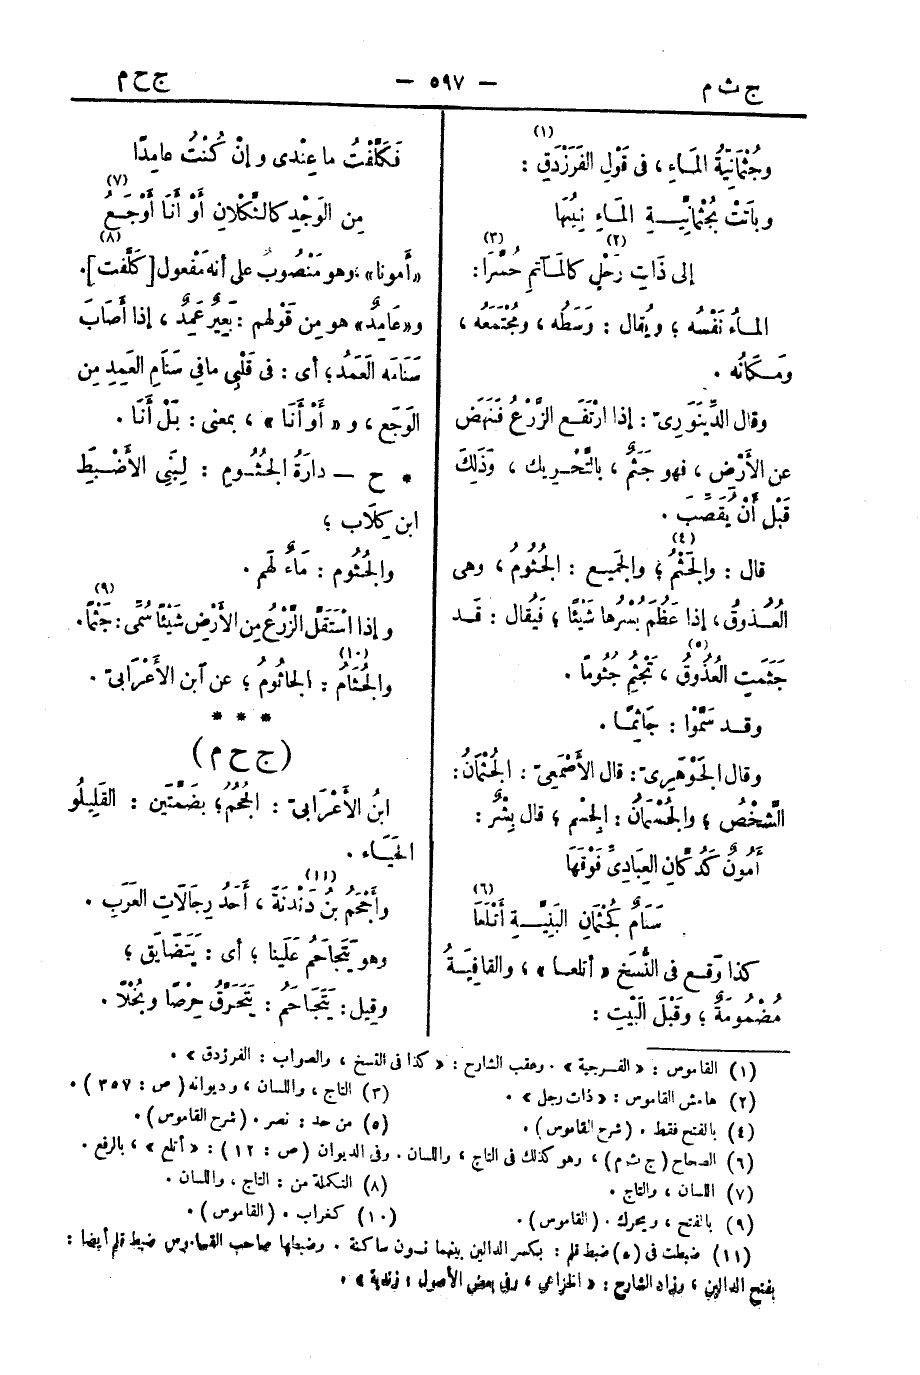 ج ث م — ٥٩٧ — ج ح م
وجُثْمَانِيَّةُ المَـاءِ ، فى قَوْلِ الفَرَزْدَقِ (١) :
وبَاتَتْ بِجُثْمَانِيَّـــةِ المَـاءِ نِيبُهَا
إلى ذَاتِ رَحْلٍ (٢) كالمَـآتِمِ حُسَّرَا (٣) :
المـاءُ نَفْسُه ؛ ويُقال : وَسَطُه ، ومُجْتَمَعُه ،
ومَـكَانُه .
وقال الدِّينَوَرِىّ : إذا ارْتَفَـع الزَّرْعُ فَنَهَضَ
عن الأَرْضِ ، فهو جَثَمٌ ، بالتَّحْرِيك ، وَذَلِكَ
قَبْل أَنْ يُقَصِّبَ .
قال : والجَثْمُ (٤) ؛ والجَمِيـع : الجُثُومُ ، وهى
العُـذُوقُ ، إذا عَظُمَ بُسْرُها شَيْئًا ؛ فَيُقال : قَـد
جَثَمَتِ العُذُوقُ ، تَجْثُمُ (٥) جُثُومًا .
وقـد سَمَّوْا : جَاثِمًـا .
وقال الجَوْهَرِىّ : قال الأَصْمَعِىّ : الجُثْمَانُ :
الشَّخْصُ ؛ والجُسْمَانُ : الجِسْم ؛ قال بِشْرٌ :
أَمُونٌ كَدُكَّانِ العِبَادِىِّ فَوْقَهَا
سَنَامٌ كَجُثْمَانِ البَنِيَّـــةِ أَتْلَعَا (٦)
كذا وَقع فى النُّسَخ « أتلعـا » ، والقافِيَـةُ
مَضْمُومَةٌ ؛ وقَبْلَ البَيْتِ :
فَـكَلَّفْتُ ما عِنْدى وإنْ كُنْتُ عامِدًا
مِن الوَجْدِ كالثَّكْلانِ أَوْ أَنَا أَوْجَـعُ (٧)
«أَمونا» ، وهو مَنْصُوبٌ على أنه مَفْعول [كَلَّفت] (٨) .
و«عَامِدٌ» هو مِن قَوْلهم : بَعِيرٌ عَمِدٌ ، إذا أَصَابَ
سَنَامَه العَمَدُ ؛ أى : فى قَلْبِى مافى سَنَامِ العَمِدِ مِن
الوَجَع ، و « أوْ أَنَا » ، بمعنى : بَلْ أَنَا .
* ح — دارَةُ الجُـثُـومِ : لِبَنِى الأَضْـبَـطِ
ابن كِلَاب ؛
والجُثُوم : مَاءٌ لَهم .
وإذا اسْتَقَلَّ الزَّرْعُ مِن الأَرْضِ شَيْئًا سُمِّى : جَثْمًا (٩) .
والجُثَامُ (١٠) : الجاثُومُ ؛ عن آبن الأَعْرَابىّ .
* * *
( ج ح م )
ابنُ الأَعْرَابىّ : الجُحُمُ ؛ بضَمَّتَين : القَلِيلُو
الحَيَـاء .
وأَجْحَمُ بنُ دَنْدَنَةَ (١١) ، أَحَدُ رِجَالَاتِ العَرَبِ .
وهو يَتَجاحَم عَلَينا ؛ أى : يَتَضَايَق ؛
وقِيل : يَتَجَاحَم : يَتَحَرَّقُ حِرْصًا وبُخْلًا .
(١) القاموس : « الفـرجية » . وعقب الشارح : « كذا فى النسخ ، والصواب : الفرزدق » .
(٢) هامش القاموس : « ذات رجل » . (٣) التاج ، واللسان ، وديوانه ( ص : ٣٥٧ ) .
(٤) بالفتح فقط . ( شرح القاموس ) . (٥) من حد : نصر . ( شرح القاموس ) .
(٦) الصحاح ( ج ث م ) ، وهو كذلك فى التاج ، واللسان . وفى الديوان ( ص : ١٢ ) : « أتلع » ، بالرفع .
(٧) اللسان ، والتاج . (٨) التكملة من : التاج ، واللسان .
(٩) بالفتح ، ويحرك . ( القاموس ) . (١٠) كغراب . ( القاموس ) .
(١١) ضبطت فى (ه) ضبط قلم : بكسر الدالين بينهما نـون ساكنة . وضبطها صاحب القـاموس ضبط قلم أيضا :
بفتح الدالين ، وزاد الشارح : « الخزاعى ، وفى بعض الأصول : زندية » .